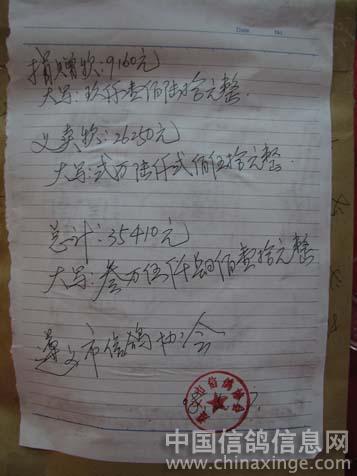 Date No.
捐赠款:9160元
大写:玖仟壹佰陆拾元整.
义卖款:26250元
大写:贰万陆仟贰佰伍拾元整.
总计:35410元
大写:叁万伍仟肆佰壹拾元整
遵义市信鸽协会
市信鸽协会
中国信鸽信息网
www.chinaxinge.com